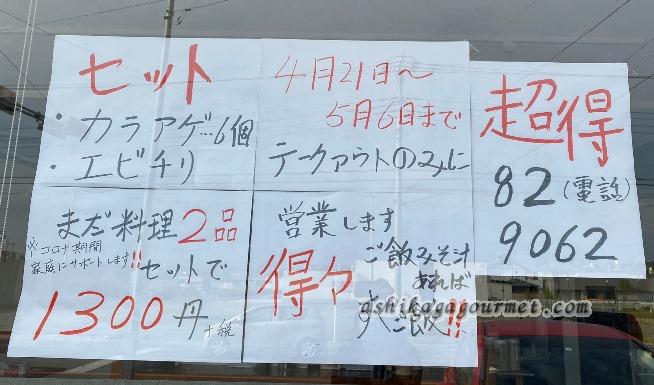 セット
・カラアゲ…6個
・エビチリ
まだ料理2品
※コロナ期間
家庭にサポートします!!
セットで
1300円
+税
4月21日〜
5月6日まで
テークアウトのみに
営業します
得々
ご飯みそ汁
あれば
すぐご飯!!
超得
82(電話)
9062
ashikagagourmet.com